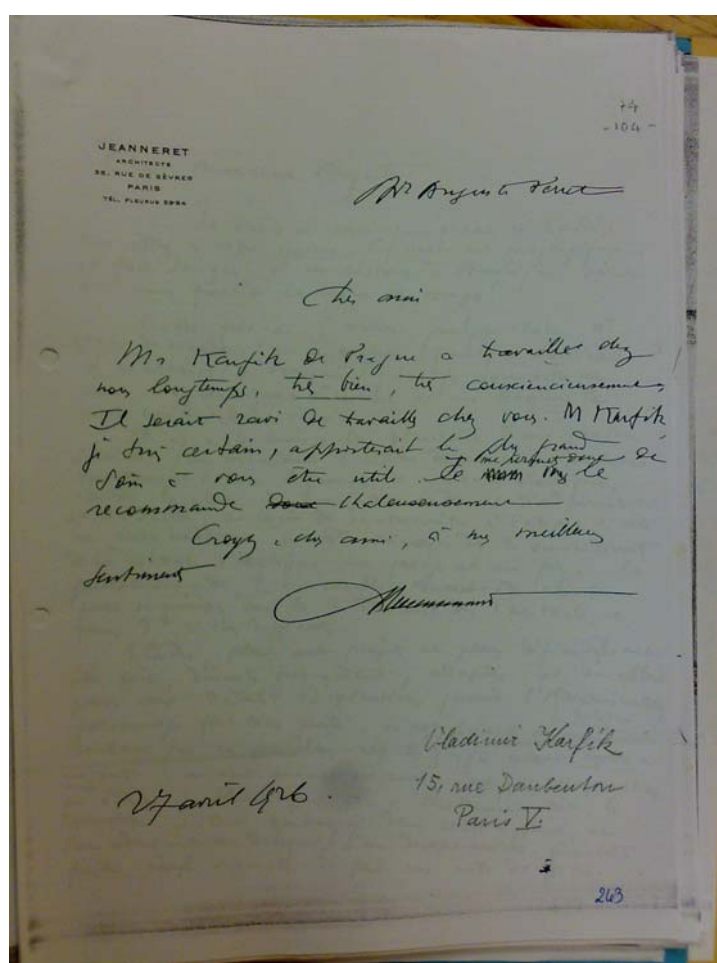 74
- 104 -
JEANNERET
ARCHITECTE
35, RUE DE SÈVRES
PARIS
TÉL. FLEURUS
Mr Auguste Perret
Cher ami
Mr Karfik de Prague a travaillé chez
nous longtemps, très bien, très consciencieusement,
Il serait ravi de travailler chez vous. M Karfik
je suis certain, apporterait le plus grand
soin à vous être utile. Je me permets donc de le
recommande donc chaleureusement
Croyez, cher ami, à mes meilleurs
sentiments
27 avril 1926.
Vladimir Karfík
15, rue Daubenton
Paris V.
243